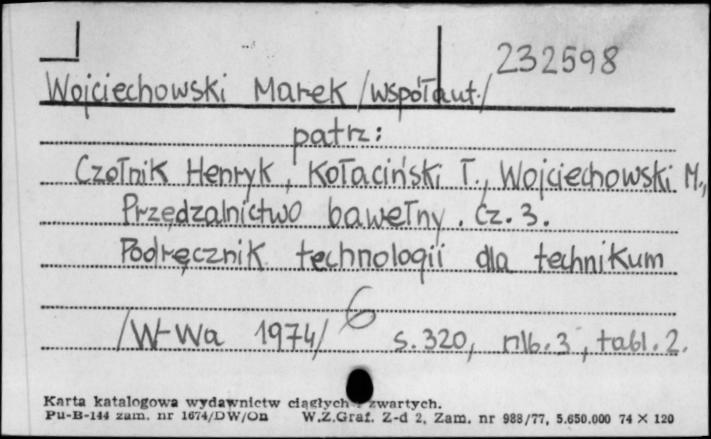 232598
Wojciechowski Marek /współaut./
patrz:
Czołnik Henryk, Kołaciński T., Wojciechowski M.,
Przędzalnictwo bawełny. Cz. 3.
Podręcznik technologii dla technikum
6
/W-Wa 1974/ s. 320, nlb. 3, tabl. 2.
Karta katalogowa wydawnictw ciągłych i zwartych.
Pu-B-144 zam. nr 1674/DW/On W.Z.Graf. Z-d 2, Zam. nr 988/77, 5.650.000 74 X 120